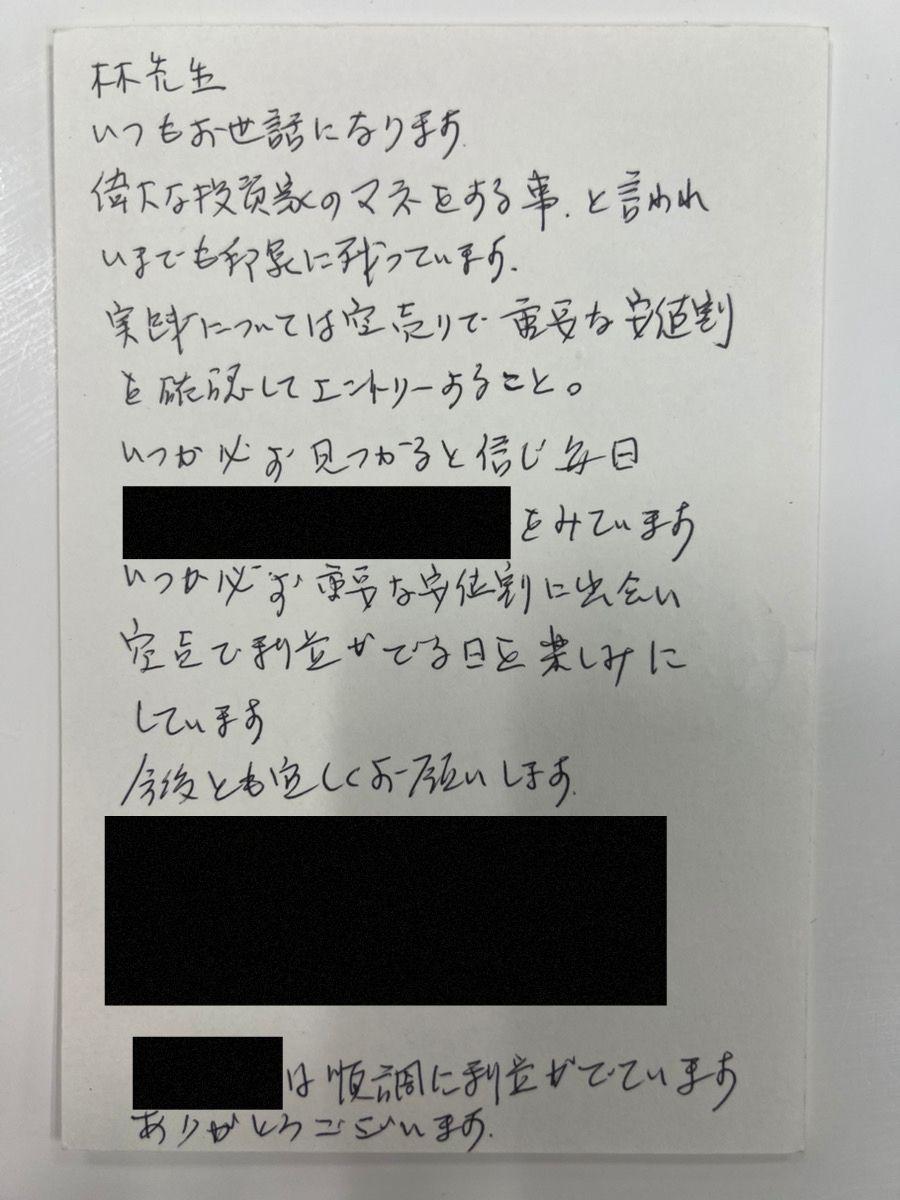 林先生
いつもお世話になります.
偉大な投資家のマネをする事、と言われ
いまでも印象に残っています.
実践については空売りで重要な安値割
を確認してエントリーすること。
いつか必ず見つかると信じ毎日
をみています
いつか必ず重要な安値割に出会い
で利益がでる日を楽しみに
しています
今後とも宜しくお願いします.
は順調に利益がでています
ありがとうございます.